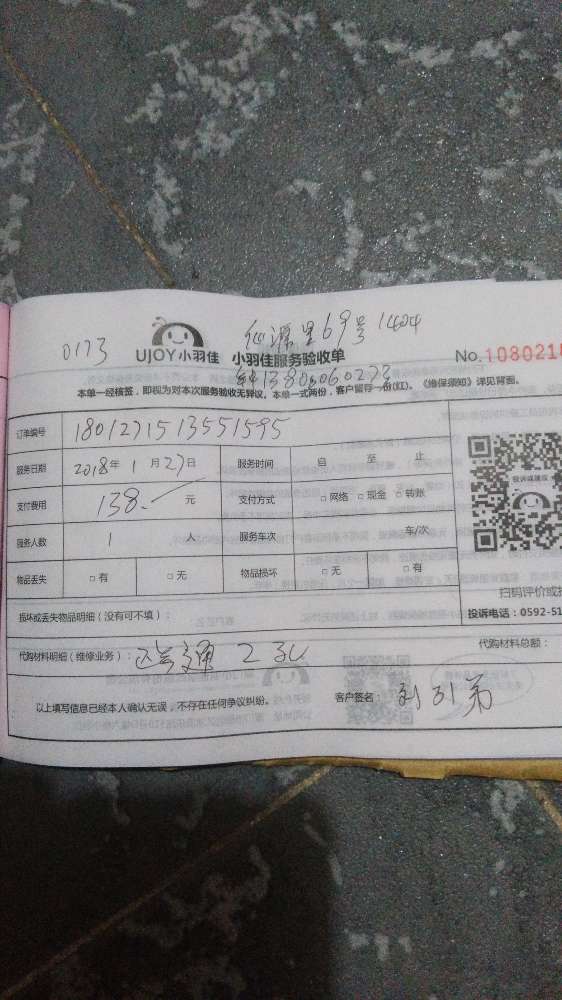 仙源里69号1404
0173 UJOY小羽佳 小羽佳服务验收单 No.108021
13806060273
本单一经核签，即视为对本次服务验收无异议，本单一式两份，客户留存一份(红)。《维保须知》详见背面。
订单编号 1801271513551595
服务日期 2018年 1 月 27日 服务时间 自 至 止
支付费用 138. 元 支付方式 □网络 □现金 □转账
服务人数 1 人 服务车次 车/次
物品丢失 □有 □无 物品损坏 □无 □有
扫码评价或投
投诉电话：0592-51
损坏或丢失物品明细（没有可填）：
代购材料明细（维修业务）： 2孔 代购材料总额：
以上填写信息已经本人确认无误，不存在任何争议纠纷。 客户签名：